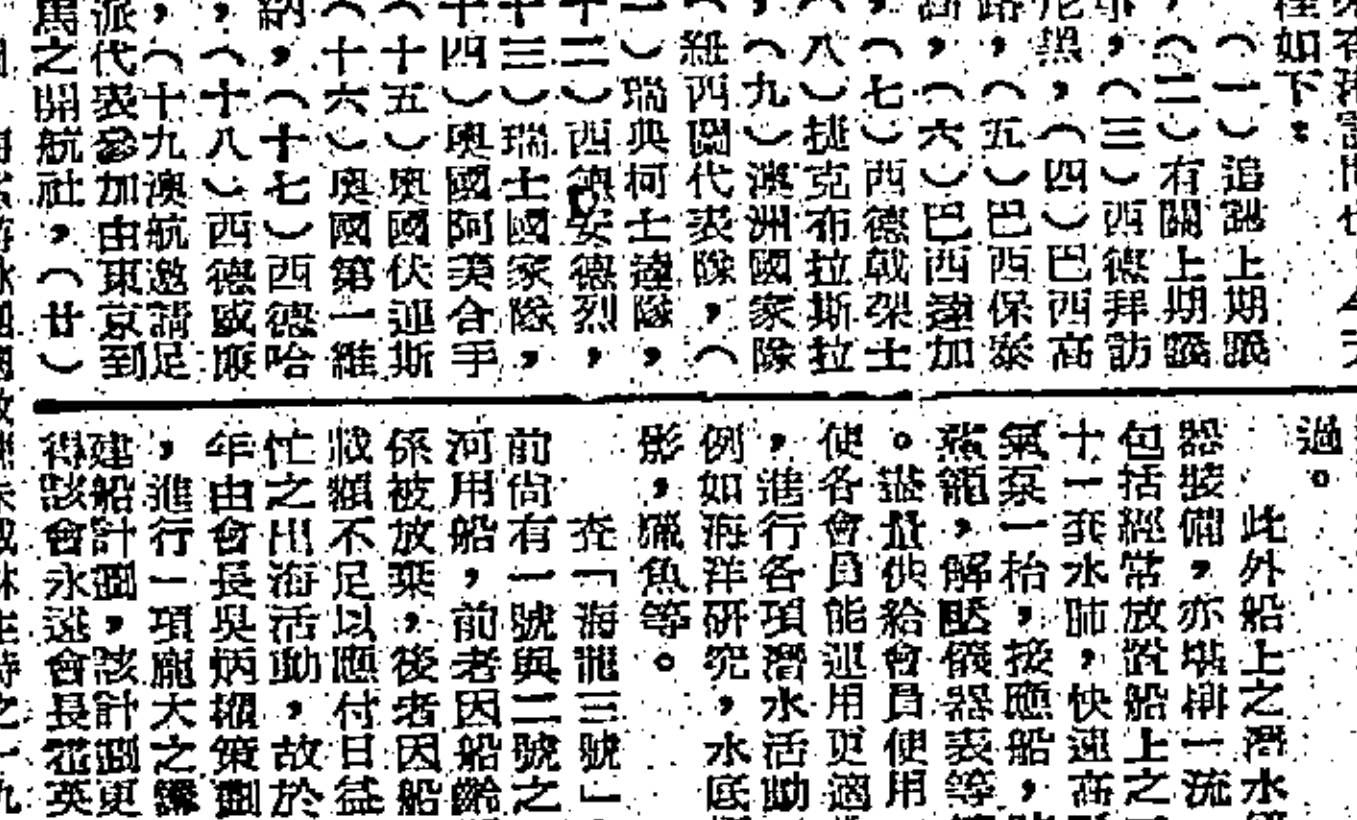 程如下：
（一）追認上期
（二）有關上期
，（三）西德拜訪
尼黑，（四）巴西高
路，（五）巴西保泰
，（六）巴西達加
，（七）西德戟架士
（八）捷克布拉斯拉
，（九）澳洲國家隊
紐西蘭代表隊，（
一）瑞典柯士達隊，
十二）西德安德烈，
十三）瑞士國家隊，
十四）奧國阿美合手
（十五）奧國伏運斯
（十六）奧國第一維
納，（十七）西德哈
，（十八）西德威
，（十九澳航邀請足
派代表參加由東京到
馬之開航社，（廿）
過。
此外船上之潛水
器裝備，亦堪稱一流
包括經常放置船上之
十一套水肺，快速高
氣泵一枱，接應船，
籠，解壓儀器表等
。盡量供給會員使用
使各會員能運用更適
，進行各項潛水活動
例如海洋研究，水底
影，獵魚等。
查「海龍三號」
前尚有一號與二號之
河用船，前者因船齡
係被放棄，後者因船
載額不足以應付日益
忙之出海活動，故於
年由會長吳炳權策劃
，進行一項龐大之
建船計劃，該計劃更
得該會永遠會長霍英